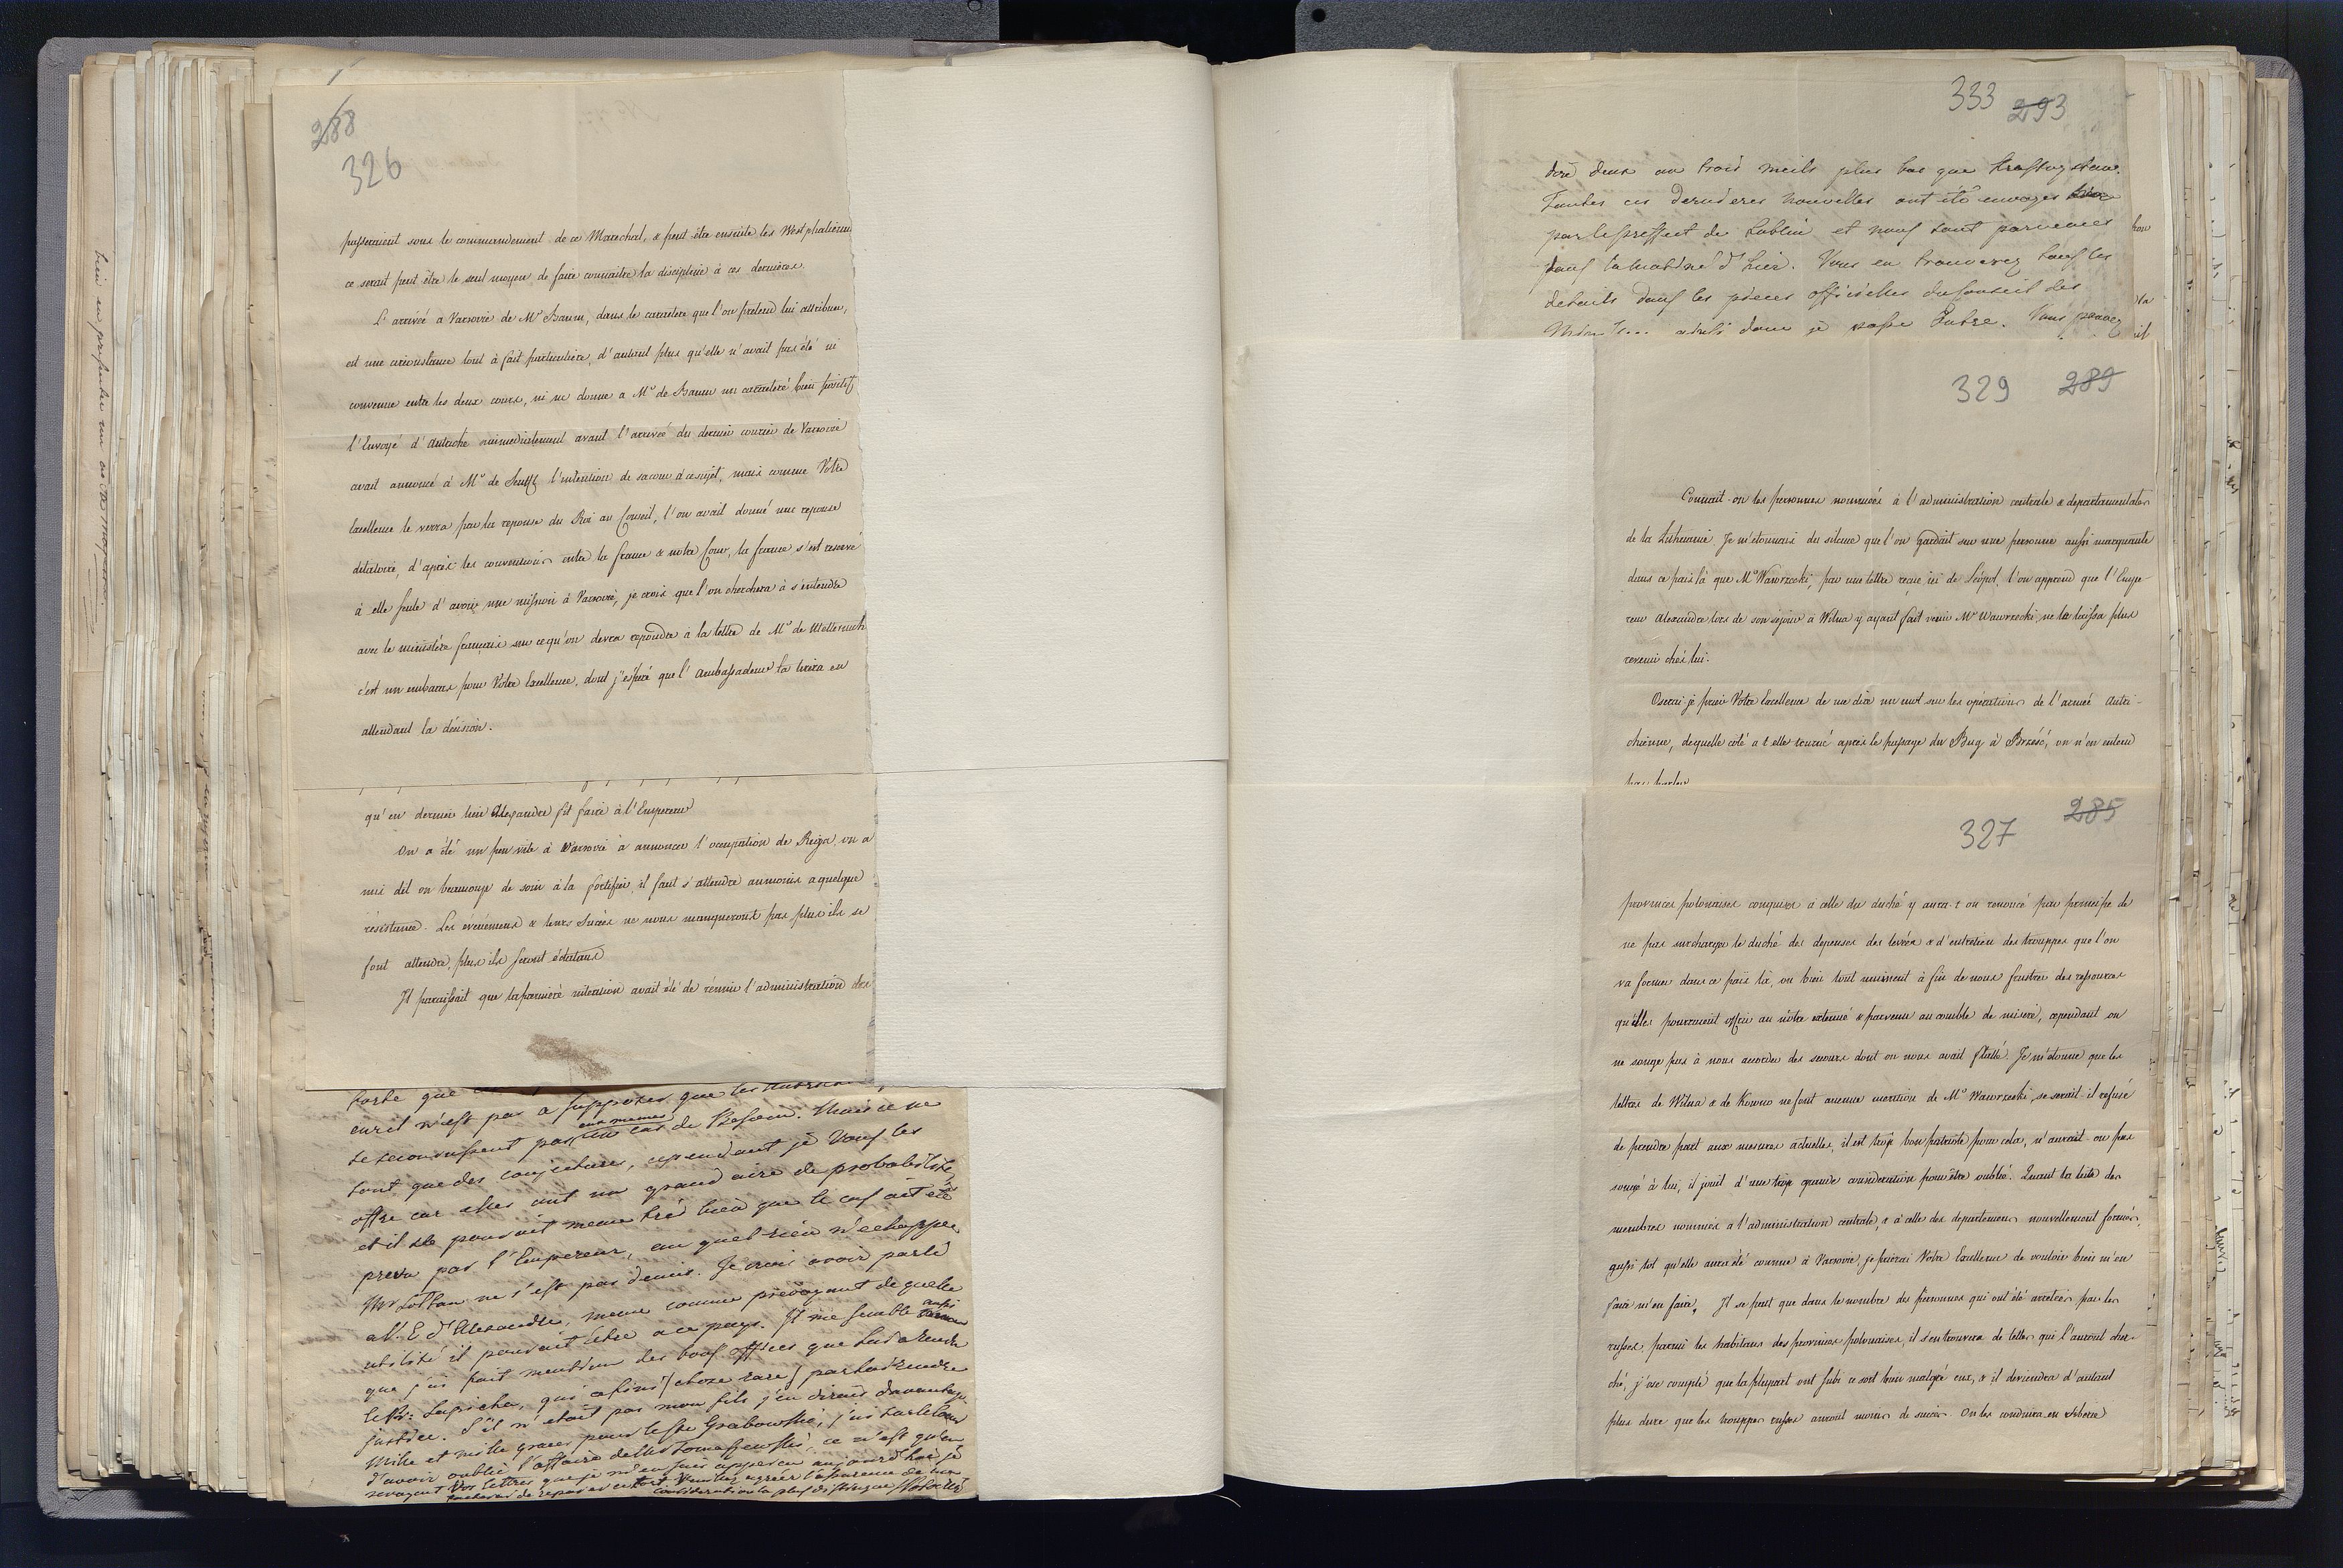 288
326
passeraient sous le commandement de ce Marechal, & peut être ensuite les Westphaliens
ce serait peut être le seul moyen de faire connaitre la discipline à ces dernières.
L'arrivée a Varsovie de Mr Baum, dans le caractère que l'on pretend lui attribuer,
est une circonstance tout à fait particulière, d'autant plus qu'elle n'avait pas été ni
convenue entre les deux cours, ni ne donne a Mr de Baum un caractere bien positif
l'Envoyé d'Autriche immediatement avant l'arrivée du dernier courier de Varsovie
avait annoncé à Mr de Senfft l'intention de sa cour à ce sujet, mais comme Votre
Excellence le verra par la reponse du Roi au Conseil, l'on avait donné une reponse
dilatoire, d'après les conventions entre la france & nôtre Cour, la france s'est reservé
à elle seule d'avoir une mission à Varsovie, je crois que l'on cherchera à s'entendre
avec le ministère français sur ce qu'on devra repondre à la lettre de Mr de Metternich
c'est un embarras pour Votre Excellence, dont j'espère que l'Ambassadeur la tirera en
attendant la décision.
qu'en dernier lieu Alexandre fit faire à l'Empereur
On a été un peu vite à Varsovie à annoncer l'occupation de Riga, on a
mis dit on beaucoup de soin à la fortifier, il faut s'attendre aumoins a quelque
résistance. Les évènemens & leurs Succès ne nous manqueront pas plus ils se
font attendre, plus ils seront éclatans
Il paraissait que la premiere intention avait été de réunir l'administration des
forte que
eu il n'est pas a supposer que les
se reconnussent pas eux memes de Besoin. Mais ce ne
sont que des conjectures, cependant je Vous les
offre car elles ont un grand aire de probabilité
et il se pouvait meme tré bien que le cas ait été
prevu par l'Empereur, au quel rien n'echappe
Mr Lottan ne s'est pas demis. Je crois avoir parlé
a V. E d'Alexandre, meme comme prevoyant de quelle
utilité il pouvait être a ce pays. Il me semble aussi
que j'ai fait mention des bons offices que lui a rendu
le Pr: Sapieha, qui a fini (chose rare) par lui rendre
justice. S'il n'etait pas mon fils j'en dirais davantage
Mille et mille graces pour le Cte Grabowski, j'ai sur le coeur
d'avoir oublié l'affaire de Mr Tomaszewski, ce n'est qu'en
revoyant Vos lettres que je m'en suis apperçu aujourd'hui je
tacherai de reparer ce tort. Veuillez agréer l'assurance de ma
consideration la plus distinguée
333 293
deux ou trois meils plus bas que Krasnystaw.
Toutes ces dernieres nouvelles ont été envoyés
par le preffect de Lublin et nous sont parvenues
dans la matiné d'hier. Vous en trouverez tous les
details dans les pieces officielles du Conseil des
Min ainsi donc je passe outre. Vous pouvez
329 289
Connait-on les personnes nommées à l'administration centrale & departamentales
de la Lithuanie. Je m'étonnais du silence que l'on gardait sur une personne aussi marquante
dans ce païs là que Mr Wawrzecki, par une lettre reçue ici de Léopol, l'on apprend que l'Empe-
reur Alexandre lors de son séjour à Wilna y ayant fait venir Mr Wawrzecki, ne le laissa plus
revenir chés lui.
Oserai-je prier Votre Excellence de me dire un mot sur les opérations de l'armée Autri-
chienne, de quelle côté a t elle tourné après le passage du Bug à Brześć, on n'en entend
pas parler
327 285
provinces polonaises conquises à celle du duché y aura-t on renoncé par principe de
ne pas surcharger le duché des depenses des levées & d'entretien des trouppes que l'on
va former dans ce païs là, ou bien tout uniment à fin de nous frustrer des ressources
qu'elles pourraient offrir au nôtre extenué & parvenu au comble de misere, cependant on
ne songe pas à nous accorder des secours dont on nous avait flatté. Je m'étonne que les
lettres de Wilna & de Kowno ne font aucune mention de Mr Wawrzecki, se serait-il refusé
de prendre part aux mesures actuelles, il est trop bon patriote pour cela, n'aurait-on pas
songé à lui, il jouit d'une trop grande consideration pour être oublié. Quant la liste des
membres nommés a l'administration centrale, & à celle des departemens nouvellement formés,
aussi tôt qu'elle aura été connue à Varsovie, je prierai Votre Excellence de vouloir bien m'en
faire m'en faire. Il se peut que dans le nombre des personnes qui ont été arretées par les
russes, parmi les habitans des provinces polonaises, il s'en trouvera de telles qui l'auront cher-
ché, j'ose compté que la plupart ont subi ce sort bien malgré eux, & il deviendra d'autant
plus dure que les trouppes russes auront moins de succès. On les conduira en Siberie